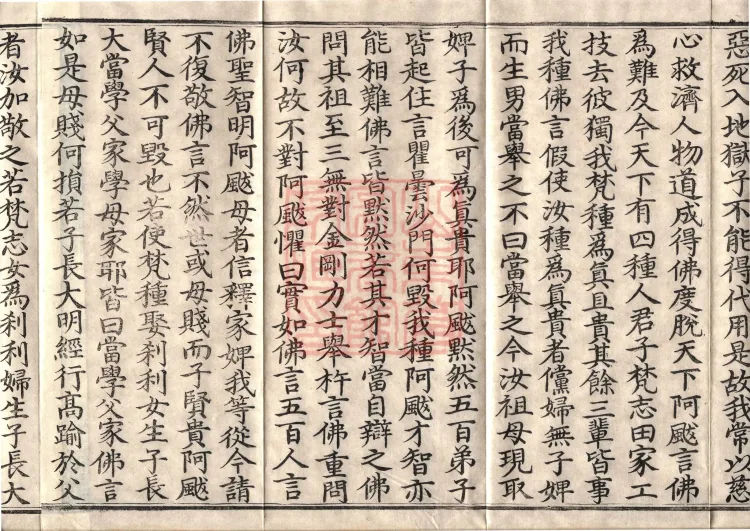 惡死入地獄子不能得代用是故我常以慈
心救濟人物道成得佛度脫天下阿颰言佛
爲難及今天下有四種人君子梵志田家工
技去彼獨我梵種爲真且貴其餘三輩皆事
我種佛言假使汝種爲真貴者儻婦無子婢
而生男當舉之不曰當舉之今汝祖母現取
婢子爲後可爲真貴耶阿颰默然五百弟子
皆起住言瞿曇沙門何毀我種阿颰才智亦
能相難佛言皆默然若其才智當自辯之佛
問其祖至三無對金剛力士舉杵言佛重問
汝何故不對阿颰懼曰實如佛言五百人言
佛聖智明阿颰母者信釋家婢我等從今請
不復敬佛言不然世或母賤而子賢貴阿颰
賢人不可毀也若使梵種娶剎利女生子長
大當學父家學母家耶皆曰當學父家佛言
如是母賤何損若子長大明經行高踰於父
者汝加敬之若梵志女爲剎利婦生子長大